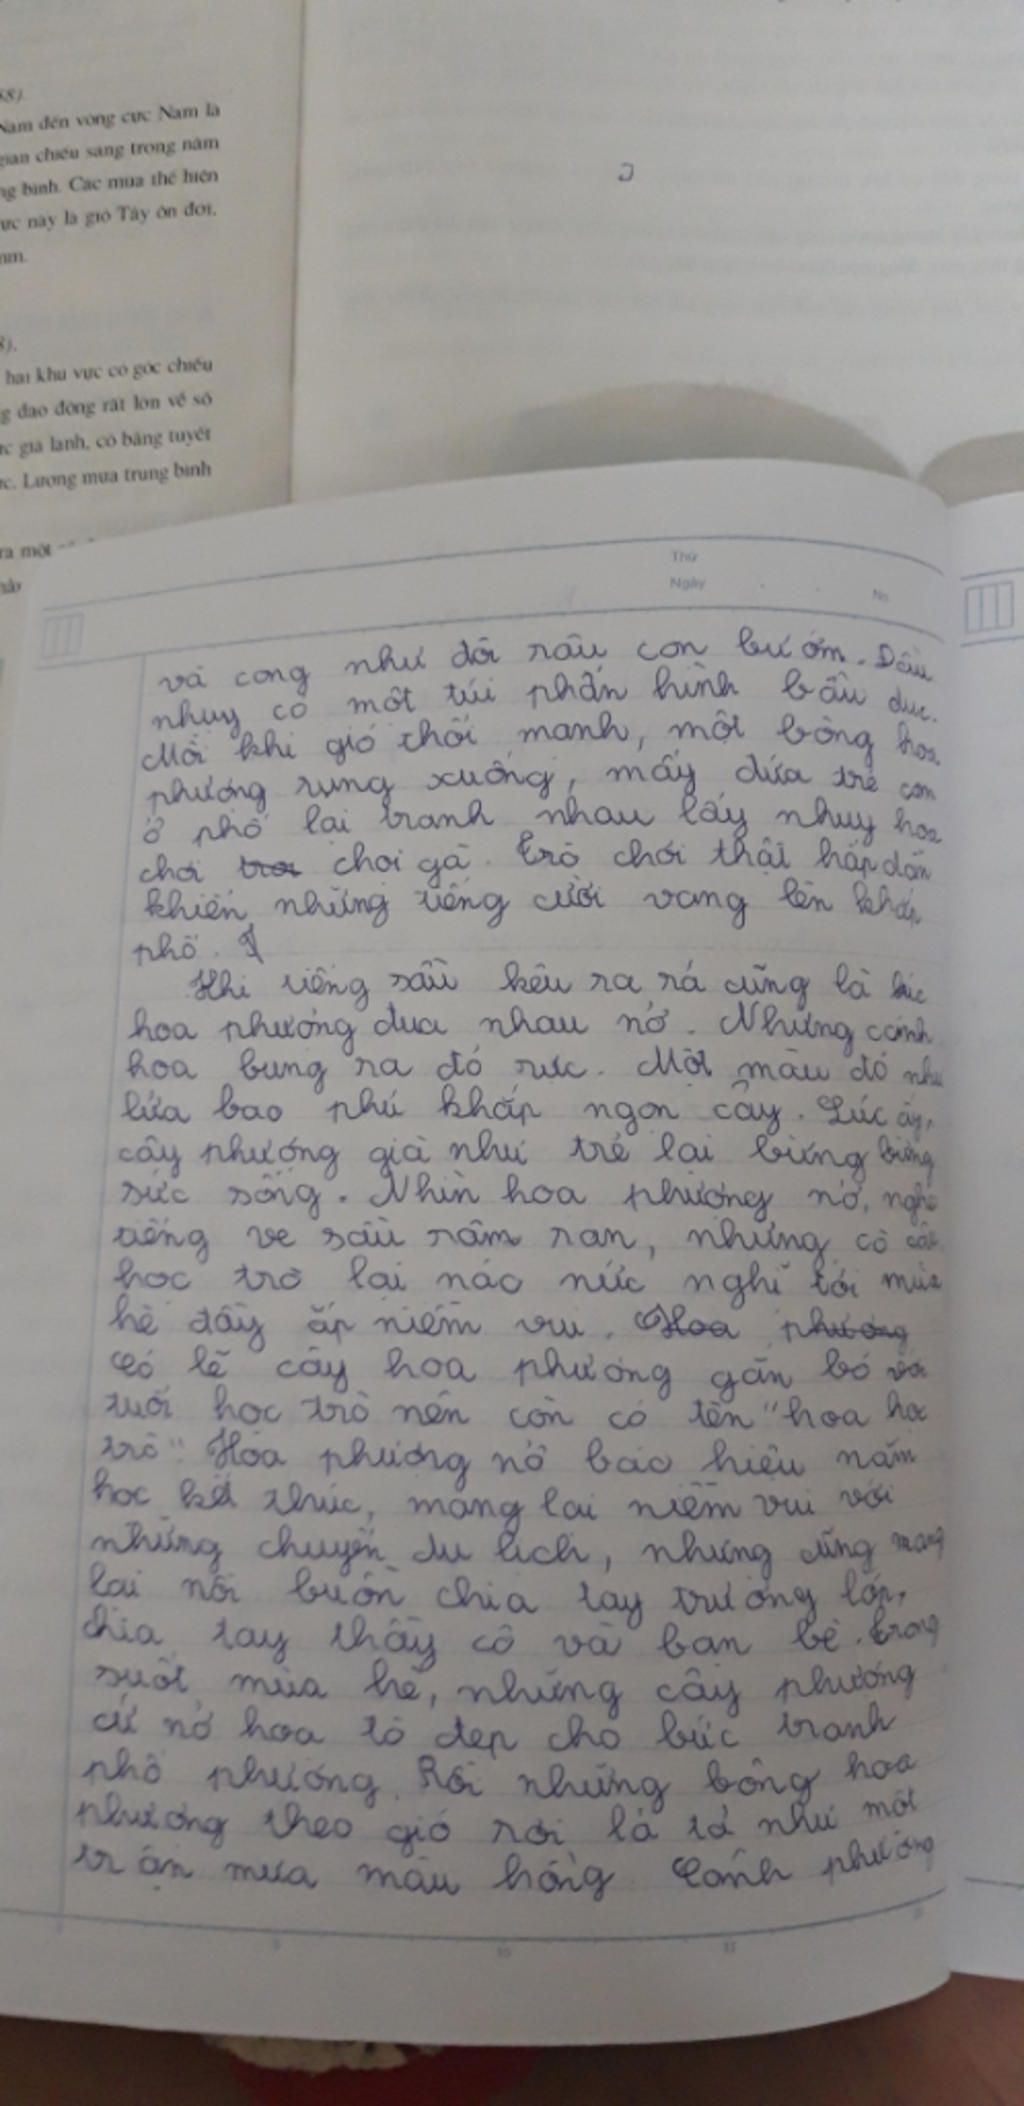 Nam đến vòng cực Nam là
gian chiếu sáng trong năm
ng bình. Các mùa thể hiện
vực này là gió Tây ôn đới,
mm.
hai khu vực có góc chiếu
g dao động rất lớn về số
ực giá lạnh, có băng tuyết
Lượng mưa trung bình
ra một
Thứ
Ngày
No.
và cong như đôi râu con bướm. Đầu
nhụy có một túi phấn hình bầu dục.
Mỗi khi gió thổi mạnh, một bông hoa
phượng rụng xuống, mấy đứa trẻ con
ở phố lại tranh nhau lấy nhụy hoa
chơi chọi gà. Trò chơi thật hấp dẫn
khiến những tiếng cười vang lên khắp
phố.
Khi tiếng sầu kêu ra rả cũng là lúc
hoa phượng đua nhau nở. Những cánh
hoa bung ra đỏ rực. Một màu đỏ như
lửa bao phủ khắp ngọn cây. Lúc ấy,
cây phượng già như trẻ lại bừng bừng
sức sống. Nhìn hoa phượng nở, nghe
tiếng ve sầu râm ran, những cô cậu
học trò lại náo nức nghĩ tới mùa
hè đầy ắp niềm vui. Hoa phượng
Có lẽ cây hoa phượng gắn bó với
tuổi học trò nên còn có tên "hoa học
trò" Hoa phượng nở báo hiệu năm
học kết thúc, mang lại niềm vui với
những chuyến du lịch, nhưng cũng mang
lại nỗi buồn chia tay trường lớp,
chia tay thầy cô và bạn bè. Trong
suốt mùa hè, những cây phượng
cứ nở hoa tô đẹp cho bức tranh
phố phường. Rồi những bông hoa
phượng theo gió rơi lả tả như một
trận mưa màu hồng. Cánh phượng
5
10
15
20